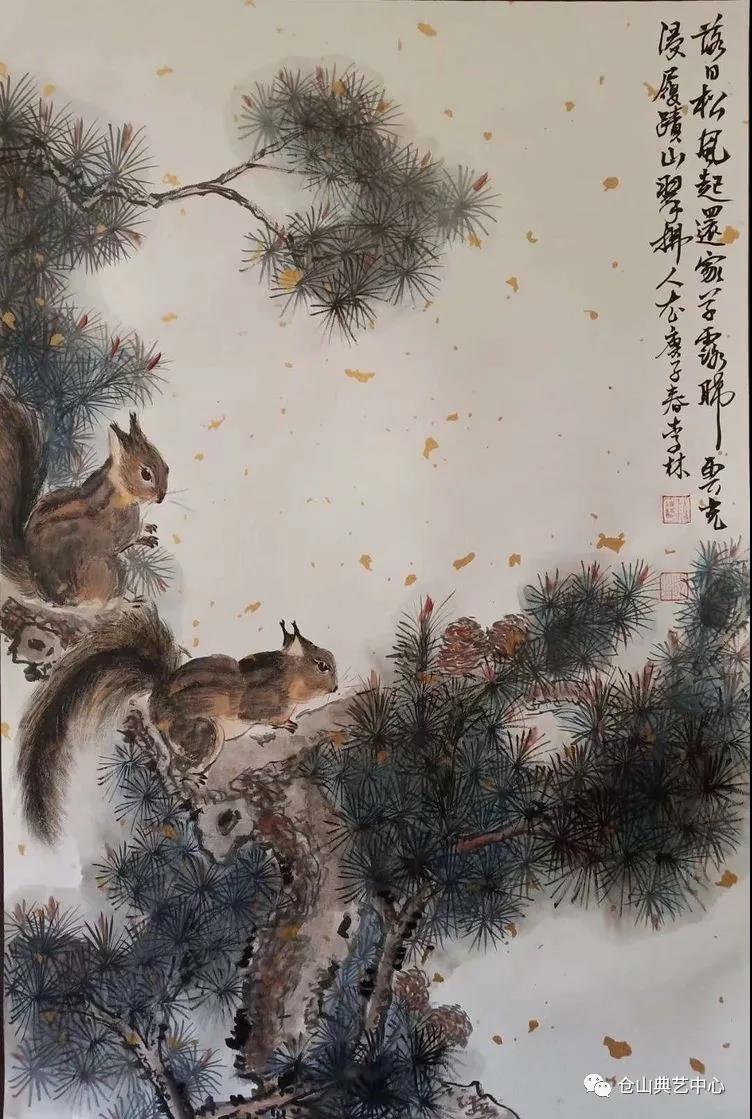 落日松風起還家草露晞雲光
侵履蹟山翠拂人衣庚子春李林
仓山典艺中心